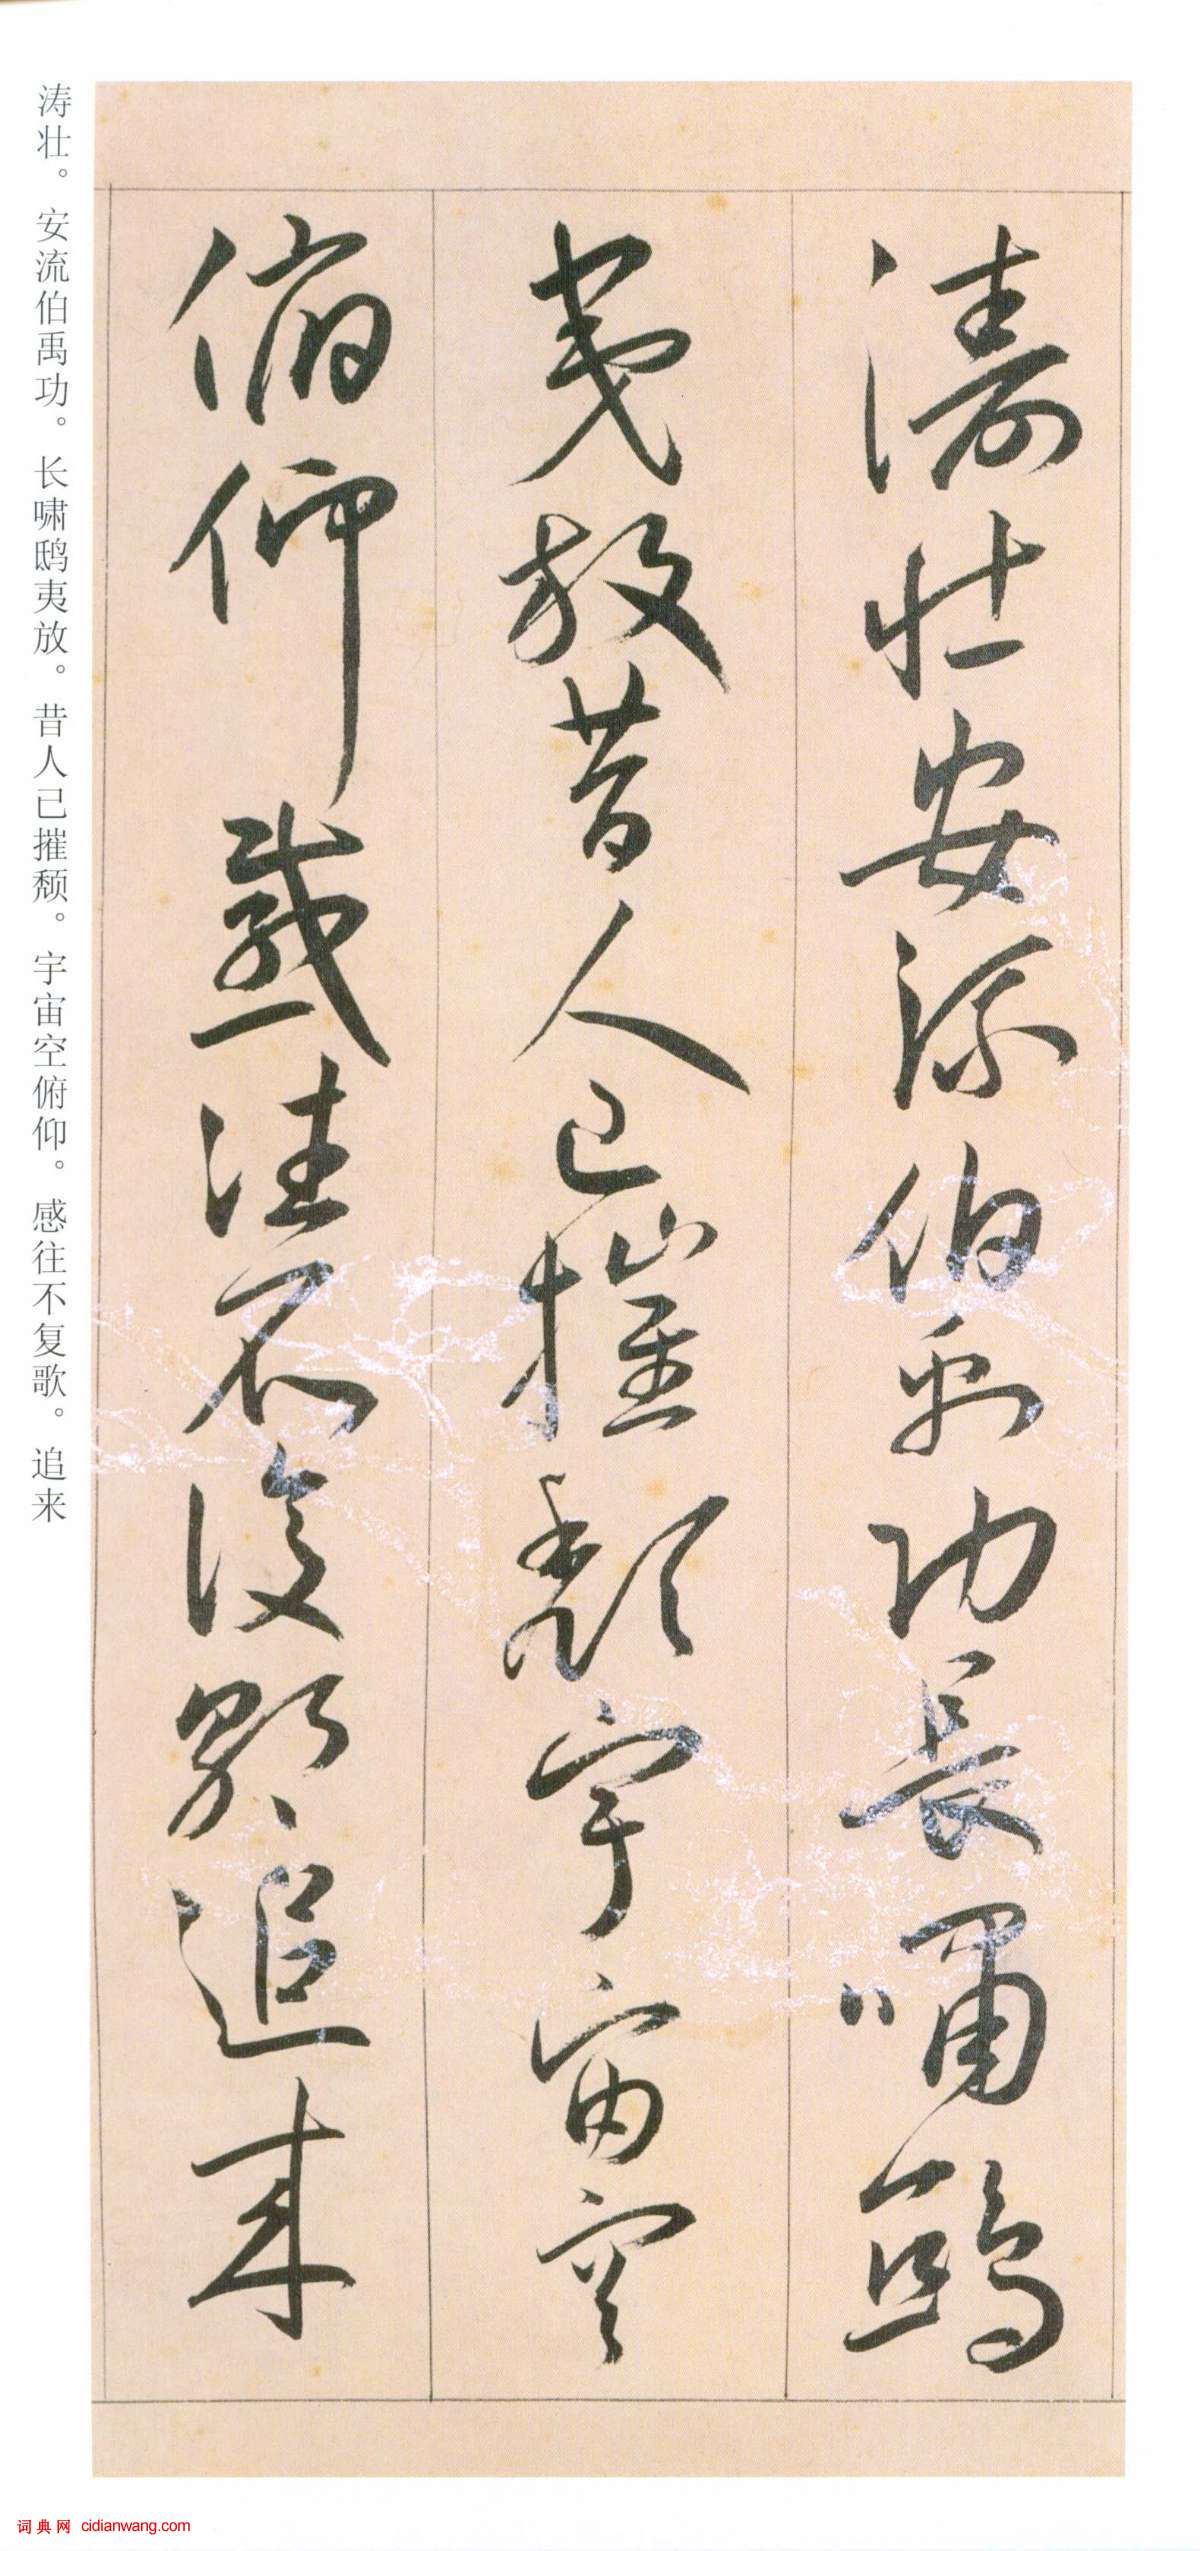 濤壯安流伯禹功長嘯鴟
夷放昔人已摧頽宇宙空
俯仰感往不復歌追来
涛壮。安流伯禹功。长啸鸱夷放。昔人已摧颓。宇宙空俯仰。感往不复歌。追来
词典网 cidianwang.com